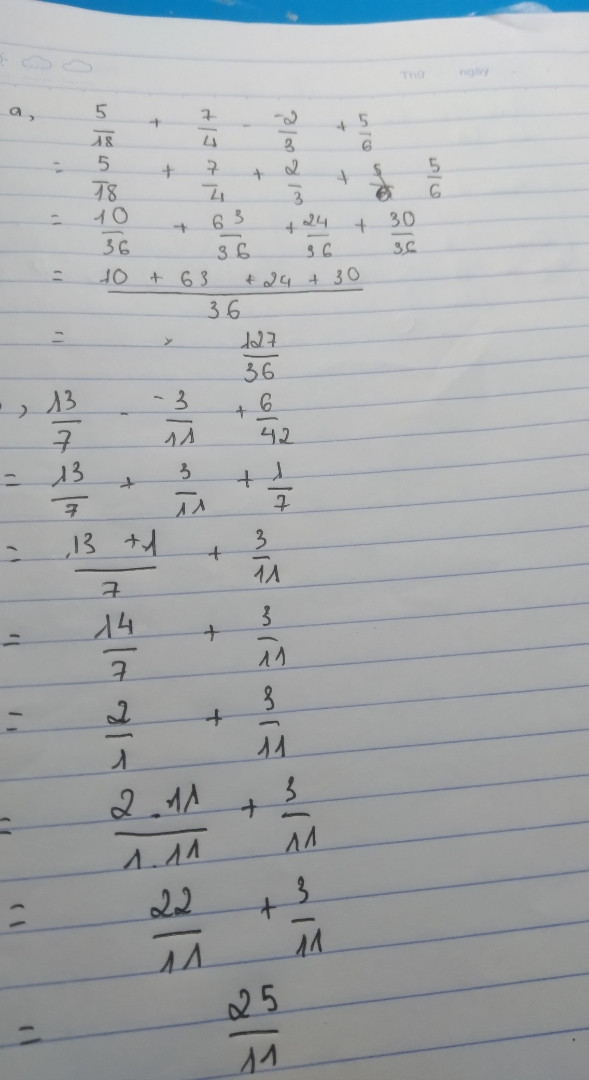 Thứ ngày
a, 5/18 + 7/4 - -2/3 + 5/6
= 5/18 + 7/4 + 2/3 + 5/6
= 10/36 + 63/36 + 24/36 + 30/36
= (10 + 63 + 24 + 30)/36
= 127/36
, 13/7 - -3/11 + 6/42
= 13/7 + 3/11 + 1/7
= (13 + 1)/7 + 3/11
= 14/7 + 3/11
= 2/1 + 3/11
= (2 . 11)/(1 . 11) + 3/11
= 22/11 + 3/11
= 25/11